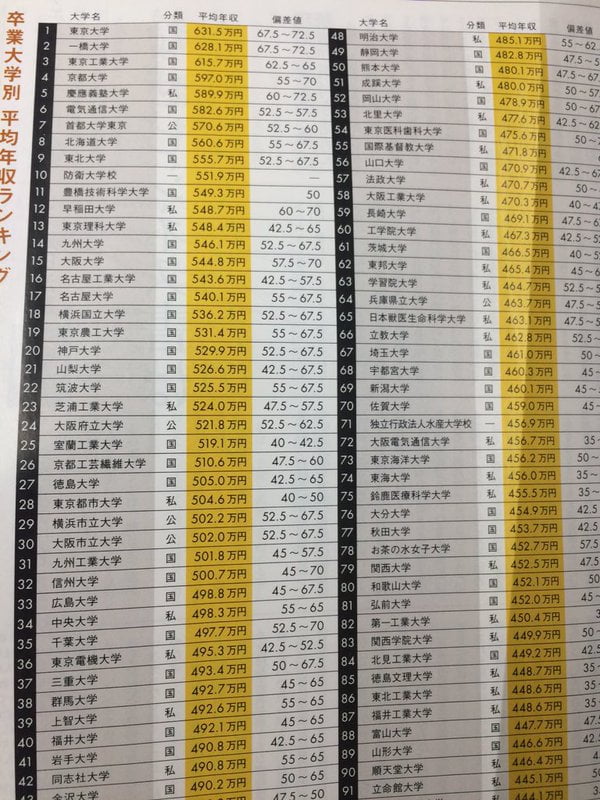 卒業大学別 平均年収ランキング
大学名 分類 平均年収 偏差値
1 東京大学 国 631.5万円 67.5～72.5
2 一橋大学 国 628.1万円 67.5～72.5
3 東京工業大学 国 615.7万円 62.5～65
4 京都大学 国 597.0万円 55～70
5 慶應義塾大学 私 589.9万円 60～72.5
6 電気通信大学 国 582.6万円 52.5～57.5
7 首都大学東京 公 570.6万円 52.5～60
8 北海道大学 国 560.6万円 55～67.5
9 東北大学 国 555.7万円 52.5～67.5
10 防衛大学校 — 551.9万円 —
11 豊橋技術科学大学 国 549.3万円 50
12 早稲田大学 私 548.7万円 60～70
13 東京理科大学 私 548.4万円 42.5～65
14 九州大学 国 546.1万円 52.5～67.5
15 大阪大学 国 544.8万円 57.5～70
16 名古屋工業大学 国 543.6万円 42.5～57.5
17 名古屋大学 国 540.1万円 55～67.5
18 横浜国立大学 国 536.2万円 52.5～67.5
19 東京農工大学 国 531.4万円 55～67.5
20 神戸大学 国 529.9万円 52.5～67.5
21 山梨大学 国 526.6万円 42.5～67.5
22 筑波大学 国 525.5万円 55～67.5
23 芝浦工業大学 私 524.0万円 47.5～57.5
24 大阪府立大学 公 521.8万円 52.5～62.5
25 室蘭工業大学 国 519.1万円 40～42.5
26 京都工芸繊維大学 国 510.6万円 47.5～60
27 徳島大学 国 505.0万円 42.5～65
28 東京都市大学 私 504.6万円 40～50
29 横浜市立大学 公 502.2万円 52.5～67.5
30 大阪市立大学 公 502.0万円 52.5～67.5
31 九州工業大学 国 501.8万円 45～57.5
32 信州大学 国 500.7万円 45～70
33 広島大学 国 498.8万円 45～67.5
34 中央大学 私 498.3万円 55～65
35 千葉大学 国 497.7万円 52.5～70
36 東京電機大学 私 495.3万円 42.5～52.5
37 三重大学 国 493.4万円 50～67.5
38 群馬大学 国 492.7万円 45～65
39 上智大学 私 492.6万円 55～65
40 福井大学 国 492.1万円 45～65
41 岩手大学 国 490.8万円 42.5～65
42 同志社大学 私 490.8万円 55～65
金沢大学 国 490.2万円 50～65
大学名 分類 平均年収 偏差値
48 明治大学 私 485.1万円 55～62.
49 静岡大学 国 482.8万円 47.5～
50 熊本大学 国 480.1万円 47.5～
51 成蹊大学 私 480.0万円 50～
52 岡山大学 国 478.9万円 50～
53 北里大学 私 477.6万円 42.5～
54 東京医科歯科大学 国 475.6万円 50～
55 国際基督教大学 私 471.8万円
56 山口大学 国 470.9万円 42.5～
57 法政大学 私 470.7万円 50～
58 大阪工業大学 私 470.3万円 40～
59 長崎大学 国 469.1万円 47.5～
60 工学院大学 私 467.3万円 42.5～
61 茨城大学 国 466.5万円 40～
62 東邦大学 私 465.4万円 45～
63 学習院大学 私 464.7万円 52.5～
64 兵庫県立大学 公 463.7万円 47.5～
65 日本獣医生命科学大学 私 463.1万円 47.5～
66 立教大学 私 462.8万円 52.5～
67 埼玉大学 国 461.0万円 50～
68 宇都宮大学 国 460.3万円 45～
69 新潟大学 国 460.1万円 45～
70 佐賀大学 国 459.0万円 45～
71 独立行政法人水産大学校 — 456.9万円
72 大阪電気通信大学 私 456.7万円 35～
73 東京海洋大学 国 456.2万円 50～
74 東海大学 私 456.0万円 35～
75 鈴鹿医療科学大学 私 455.5万円 35～
76 大分大学 国 454.9万円 42.5
77 秋田大学 国 453.7万円 42.5
78 お茶の水女子大学 国 452.7万円 57.5
79 関西大学 私 452.5万円 47.5
80 和歌山大学 国 452.1万円 50
81 弘前大学 国 452.0万円 45～
82 第一工業大学 私 450.4万円
83 関西学院大学 私 449.9万円 50～
84 北見工業大学 国 449.2万円 42.5
85 徳島文理大学 私 448.7万円 35～
86 東北工業大学 私 448.6万円 35～
87 福井工業大学 私 448.6万円 35～
88 富山大学 国 447.7万円 47.5
89 山形大学 国 446.6万円 42.5
90 順天堂大学 私 446.4万円
91 立命館大学 私 445.1万円 50
444.1万円